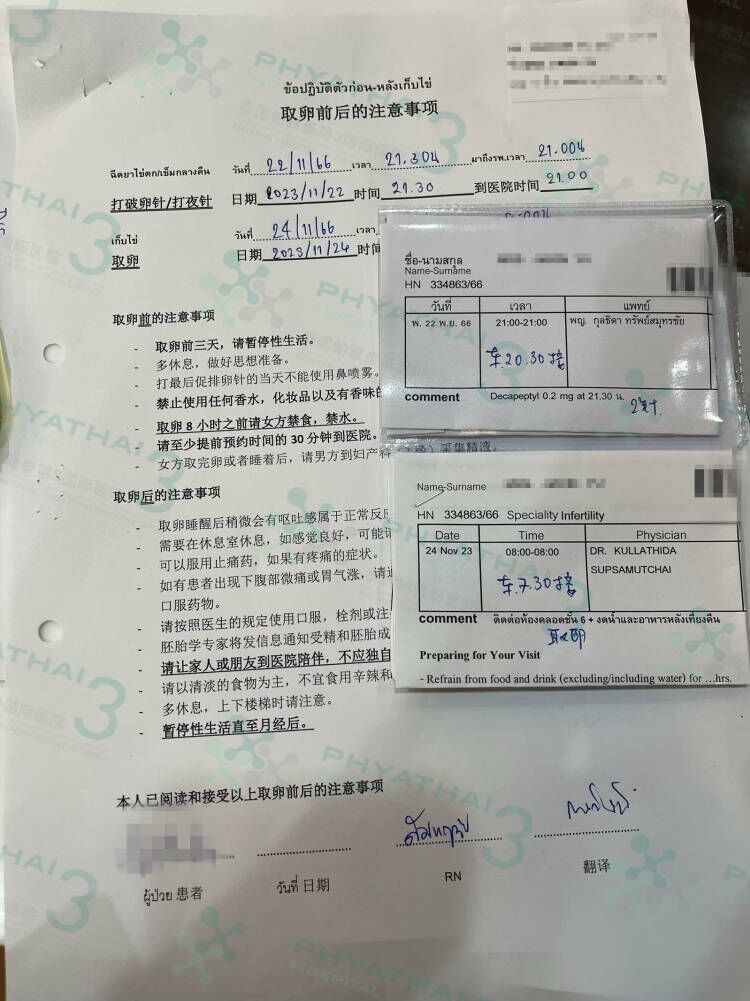 ข้อปฏิบัติตัวก่อน-หลังเก็บไข่
取卵前后的注意事项
ฉีดยาไข่ตก/เข็มกลางคืน วันที่ 22/11/66 เวลา 21.30น มาถึงรพ.เวลา 21.00น
打破卵针/打夜针 日期 2023/11/22 时间 21.30 到医院时间 21.00
เก็บไข่ วันที่ 24/11/66 เวลา
取卵 日期 2023/11/24 时间
取卵前的注意事项
- 取卵前三天，请暂停性生活。
- 多休息，做好思想准备。
- 打最后促排卵针的当天不能使用鼻喷雾。
- 禁止使用任何香水，化妆品以及有香味的
- 取卵 8 小时之前请女方禁食，禁水。
- 请至少提前预约时间的 30 分钟到医院。
- 女方取完卵或者睡着后，请男方到妇产科
采集精液。
取卵后的注意事项
- 取卵睡醒后稍微会有呕吐感属于正常反应
- 需要在休息室休息，如感觉良好，可能
- 可以服用止痛药，如果有疼痛的症状。
- 如有患者出现下腹部微痛或胃气涨，请
口服药物。
- 请按照医生的规定使用口服，栓剂或注
- 胚胎学专家将发信息通知受精和胚胎成
- 请让家人或朋友到医院陪伴，不应独自
- 请以清淡的食物为主，不宜食用辛辣和
- 多休息，上下楼梯时请注意。
- 暂停性生活直至月经后。
本人已阅读和接受以上取卵前后的注意事项
ผู้ป่วย 患者
วันที่ 日期
RN
翻译
ชื่อ-นามสกุล
Name-Surname
HN 334863/66
วันที่ เวลา แพทย์
พ. 22 พ.ย. 66 21:00-21:00 พญ. กุลธิดา ทรัพย์สมุทรชัย
车20.30接
comment Decapeptyl 0.2 mg at 21.30 น.
2针.
Name-Surname
HN 334863/66 Speciality Infertility
Date Time Physician
24 Nov 23 08:00-08:00 DR. KULLATHIDA
SUPSAMUTCHAI
车.7.30接
comment ติดต่อห้องคลอดชั้น 6 + งดน้ำและอาหารหลังเที่ยงคืน
取卵
Preparing for Your Visit
- Refrain from food and drink (excluding/including water) for ...hrs.
PHYATHAI 3
HOSPITAL